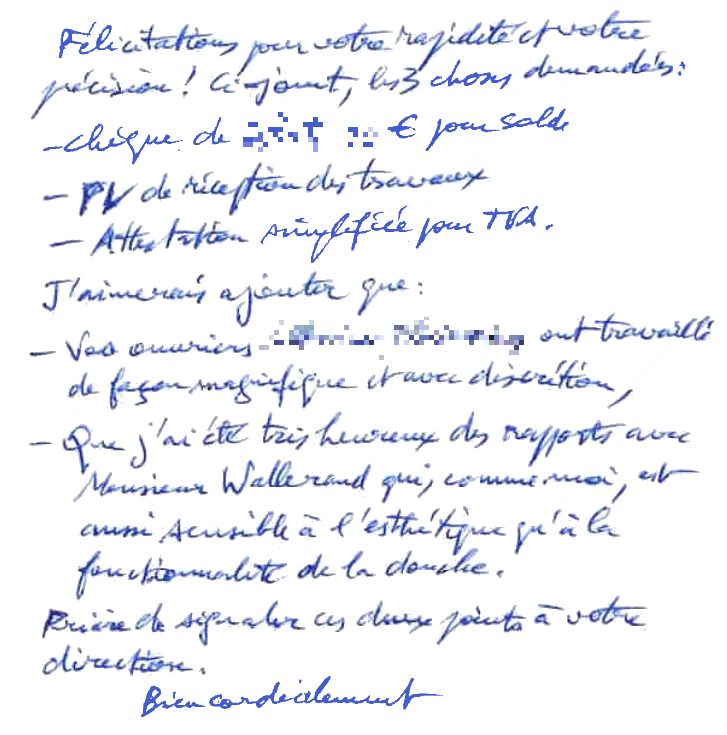 Félicitations pour votre rapidité et votre
précision ! Ci-joint, les 3 choses demandées :
- chèque de € pour solde
- PV de réception des travaux
- Attestation simplifiée pour TVA.
J'aimerais ajouter que :
- Vos ouvriers ont travaillé
de façon magnifique et avec discrétion,
- Que j'ai été très heureux des rapports avec
Monsieur Wallerand qui, comme moi, est
aussi sensible à l'esthétique qu'à la
fonctionnalité de la douche.
Prière de signaler ces deux points à votre
direction.
Bien cordialement